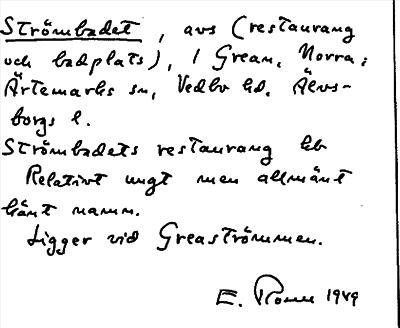 Strömbadet, avs (restaurang
och badplats), l Grean, Norra;
Ärtemarks sn, Vedbo hd. Älvs-
borgs l.
Strömbadets restaurang kb
Relativt ungt men allmänt
känt namn.
Ligger vid Greaströmmen.
E. 1949